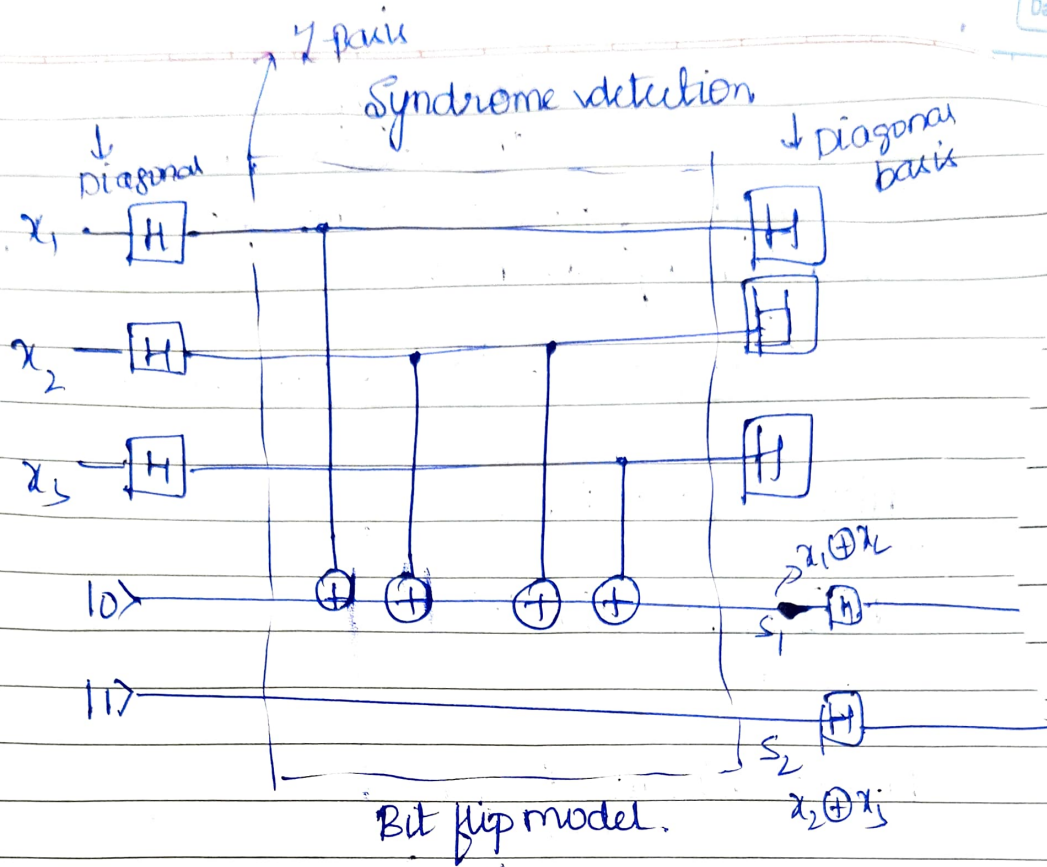 Syndrome detection
↓
Diagonal
↓ Diagonal
basis
x₁ H H
x₂ H H
x₃ H H
x₁⊕x₂
|0> S₁ H
|1> S₂ H
x₂⊕x₃
Bit flip model.